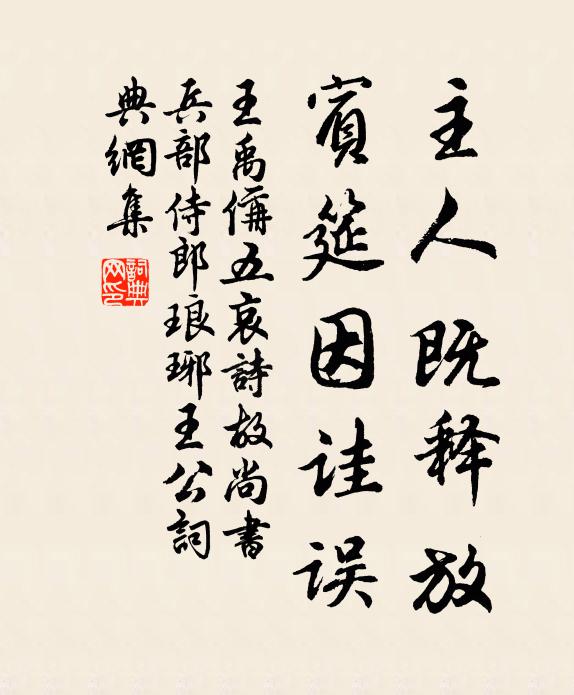 主人既释放
賓筵因诖误
王禹偁五哀詩故尚書
兵部侍郎琅琊王公詞
典網集
詞典网印